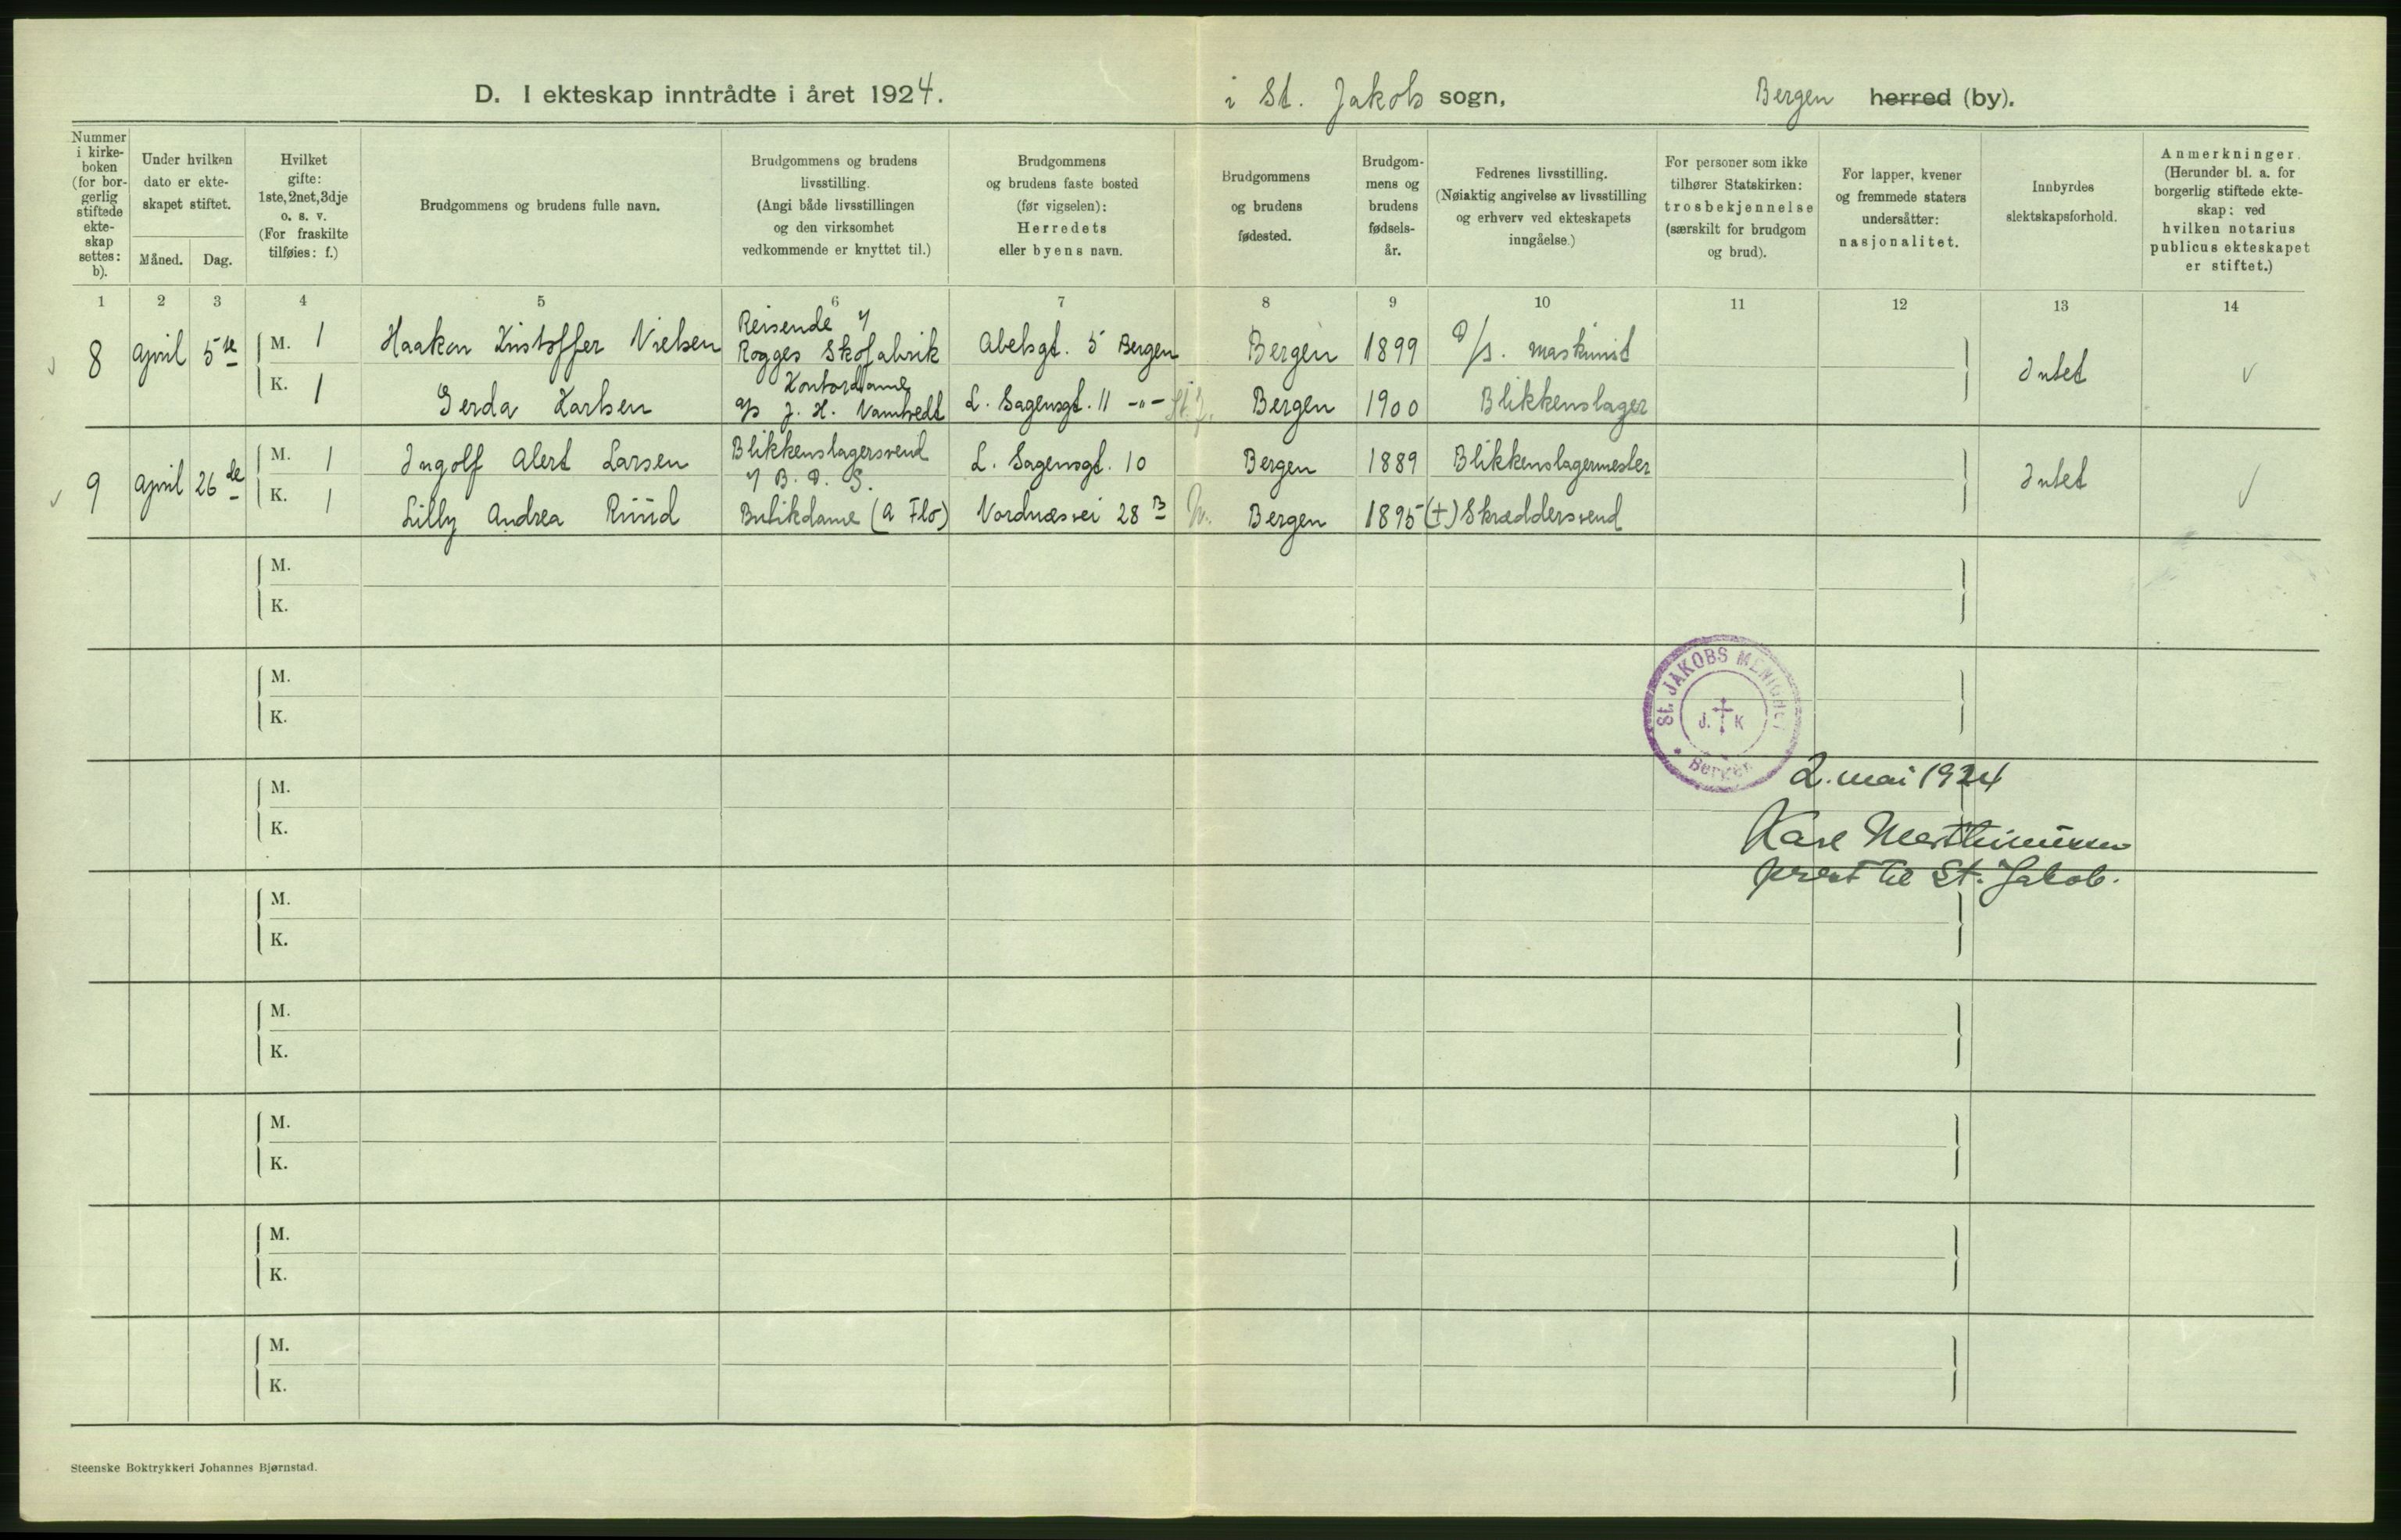 D. I ekteskap inntrådte i året 1924. i St. Jakob sogn, Bergen herred (by).
Nummer i kirke- boken (for bor- gerlig stiftede ekte- skap settes: b).
Under hvilken dato er ekte- skapet stiftet.
Måned. Dag.
Hvilket gifte: 1ste, 2net, 3dje o. s. v. (For fraskilte tilføies: f.)
Brudgommens og brudens fulle navn.
Brudgommens og brudens livsstilling. (Angi både livsstillingen og den virksomhet vedkommende er knyttet til.)
Brudgommens og brudens faste bosted (før vigselen): Herredets eller byens navn.
Brudgommens og brudens fødested.
Brudgom- mens og brudens fødsels- år.
Fedrenes livsstilling. (Nøiaktig angivelse av livsstilling og erhverv ved ekteskapets inngåelse.)
For personer som ikke tilhører Statskirken: trosbekjennelse (særskilt for brudgom og brud).
For lapper, kvener og fremmede staters undersåtter: nasjonalitet.
Innbyrdes slektskapsforhold.
Anmerkninger. (Herunder bl. a. for borgerlig stiftede ekte- skap: ved hvilken notarius publicus ekteskapet er stiftet.)
1 2 3 4 5 6 7 8 9 10 11 12 13 14
8 April 5te M. 1 Haakon Kristoffer Nielsen Reisende i/ Rogges Skofabrik Abelsgt. 5 Bergen Bergen 1899 D/s. maskinist Intet
K. 1 Gerda Karlsen Kontordame J. H. L. Sagensgt. 11 -"- St. J. Bergen 1900 Blikkenslager
9 April 26de M. 1 Ingolf Alert Larsen Blikkenslagersvend i/ B. D. S. L. Sagensgt. 10 Bergen 1889 Blikkenslagermester Intet
K. 1 Lilly Andrea Ruud Butikdame (A Flo) Nordnæsvei 28 B N. Bergen 1895 (+) Skræddersvend
M.
K.
M.
K.
St. JAKOBS MENIGHET
J. K
Bergen
M.
K.
2. mai 1924
Kåre Marthinussen
prest til St. Jakob.
M.
K.
M.
K.
M.
K.
M.
K.
M.
K.
Steenske Boktrykkeri Johannes Bjørnstad.